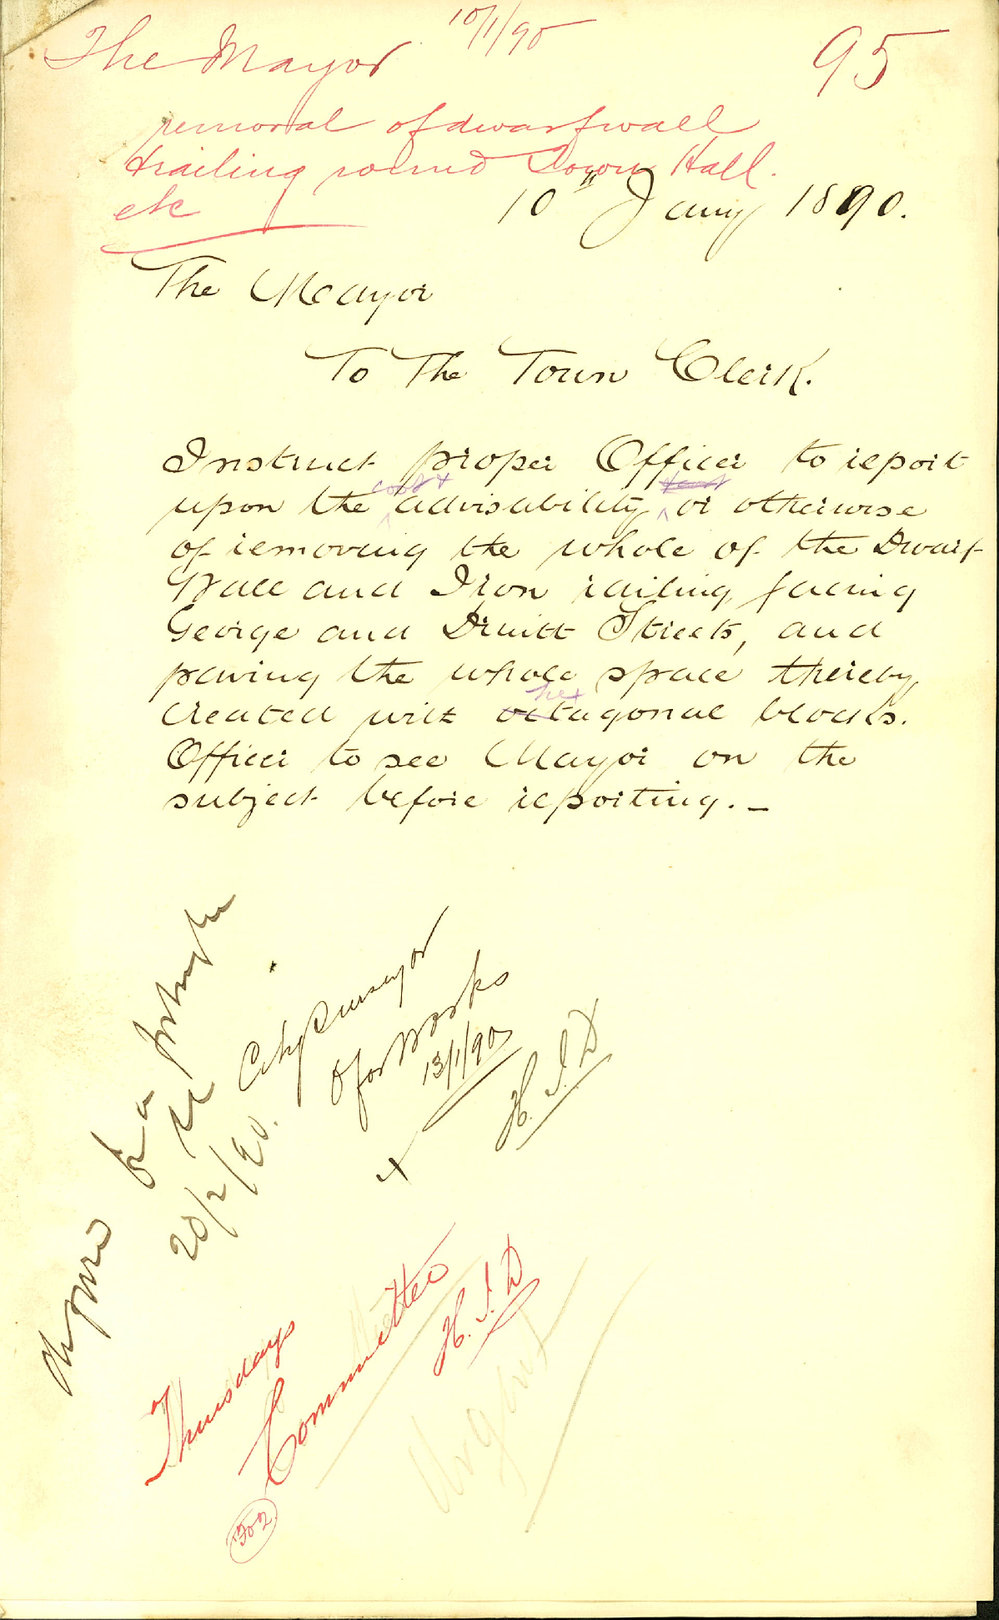 10/1/90
The Mayor
95
removal of dwarf wall
& railing round Town Hall.
etc
10" Jany 1890.
The Mayor
To The Town Clerk.
Instruct proper Officer to report
upon the cost & advisability or otherwise
of removing the whole of the Dwarf
Wall and Iron railing facing
George and Druitt Streets, and
paving the whole space thereby
created with octagonal blocks.
hex
Officer to see Mayor on the
subject before reporting. _
City Surveyor
for Works
13/1/90
H.I.D
20/2/90.
Thursdays
Committee
H.I.D
Urgent